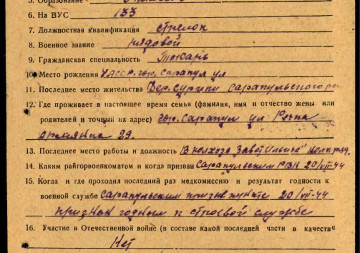 5. Образование
6. На ВУС 133
7. Должностная квалификация стрелок
8. Военное звание рядовой
9. Гражданская специальность Токарь
10. Место рождения УАССР, гор. Сарапул ул
11. Последнее место жительства Дер. Сарапульского р
12. Где проживает в настоящее время семья (фамилия, имя и отчество жены или
родителей и точный их адрес) гор. Сарапул ул.
29.
13. Последнее место работы и должность В колхозе Завет Ильича
14. Каким райгорвоенкоматом и когда призван Сарапульским РВК 20/VII-44
15. Когда и где проходил последний раз медкомиссию и результат годности к
военной службе Сарапульским призывпункте 20/VII-44
признан годным к строевой службе
16. Участие в Отечественной войне (в составе какой последней части в качестве
Нет